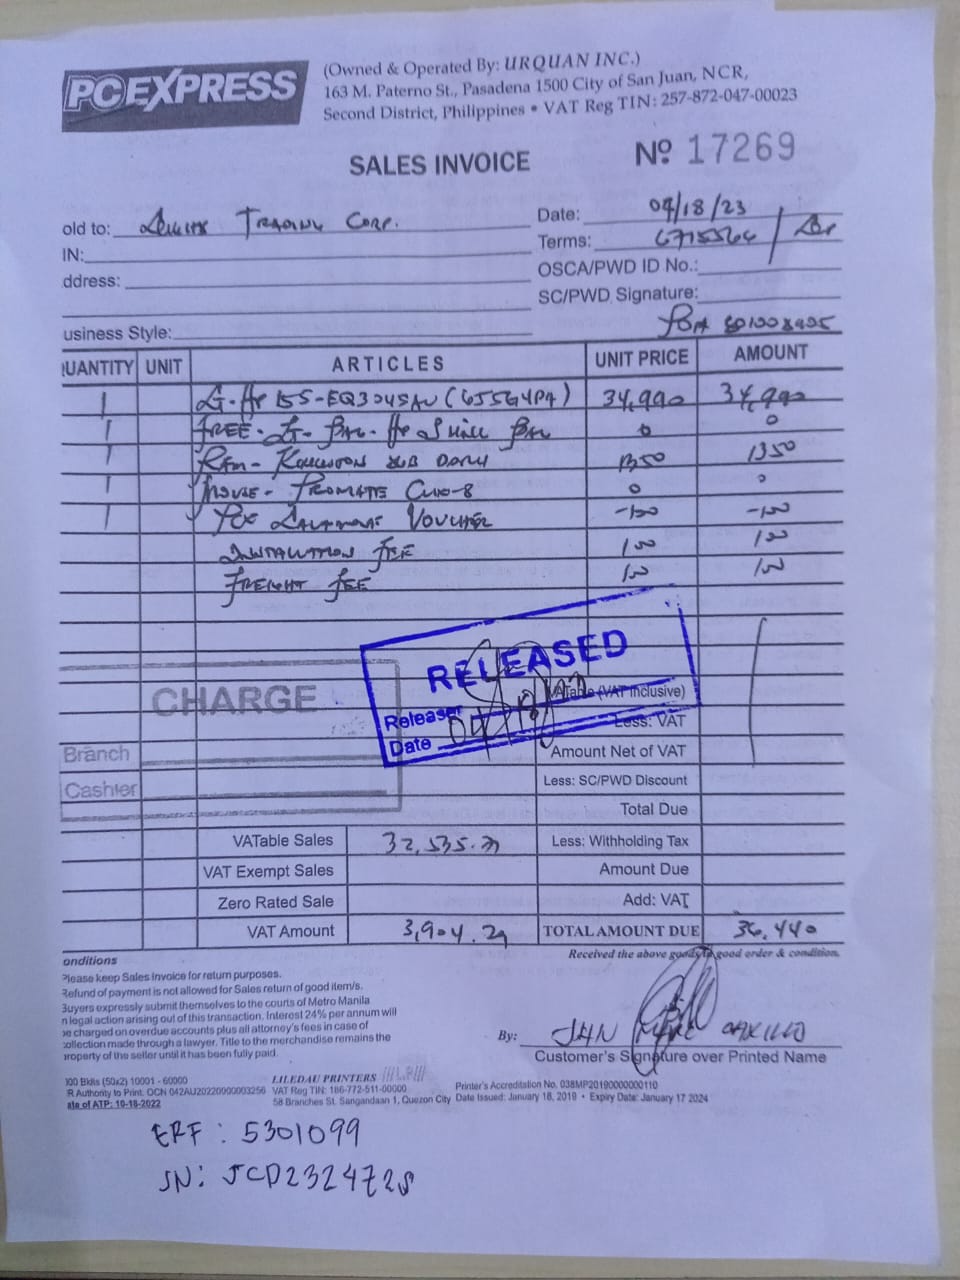 PCEXPRESS
(Owned & Operated By: URQUAN INC.)
163 M. Paterno St., Pasadena 1500 City of San Juan, NCR,
Second District, Philippines • VAT Reg TIN: 257-872-047-00023
SALES INVOICE
Nº 17269
old to: Trading Corp.
Date: 04/18/23
IN:
Terms: 6715564 /
ddress:
OSCA/PWD ID No.:
SC/PWD Signature:
usiness Style:
UANTITY UNIT ARTICLES UNIT PRICE AMOUNT
1 HP 15S-EQ3045AU (6J5G4PA) 34,990 34,990
1 FREE - HP Bag 0 0
1 RAM - 1350 1350
1 MOUSE - PROMATE 0 0
1 VOUCHER -100 -100
FEE 100 100
FREIGHT FEE 100 100
RELEASED
Releaser
Date 04/18/
CHARGE
Branch
Cashier
VATable (VAT Inclusive)
Less: VAT
Amount Net of VAT
Less: SC/PWD Discount
Total Due
VATable Sales 32,535.71 Less: Withholding Tax
VAT Exempt Sales Amount Due
Zero Rated Sale Add: VAT
VAT Amount 3,904.29 TOTAL AMOUNT DUE 36,440
onditions
Please keep Sales Invoice for return purposes.
Refund of payment is not allowed for Sales return of good item/s.
Buyers expressly submit themselves to the courts of Metro Manila
n legal action arising out of this transaction. Interest 24% per annum will
be charged on overdue accounts plus all attorney's fees in case of
collection made through a lawyer. Title to the merchandise remains the
property of the seller until it has been fully paid.
Received the above goods in good order & condition.
By:
Customer's Signature over Printed Name
00 Bklts (50x2) 10001 - 60000
R Authority to Print: OCN 042AU20220000003256
ate of ATP: 10-18-2022
LILEDAU PRINTERS
VAT Reg TIN: 186-772-511-00000
58 Branches St. Sangandaan 1, Quezon City
Printer's Accreditation No. 038MP20190000000110
Date Issued: January 18, 2019 • Expiry Date: January 17 2024
ERF: 5301099
SN: 5CD232472S